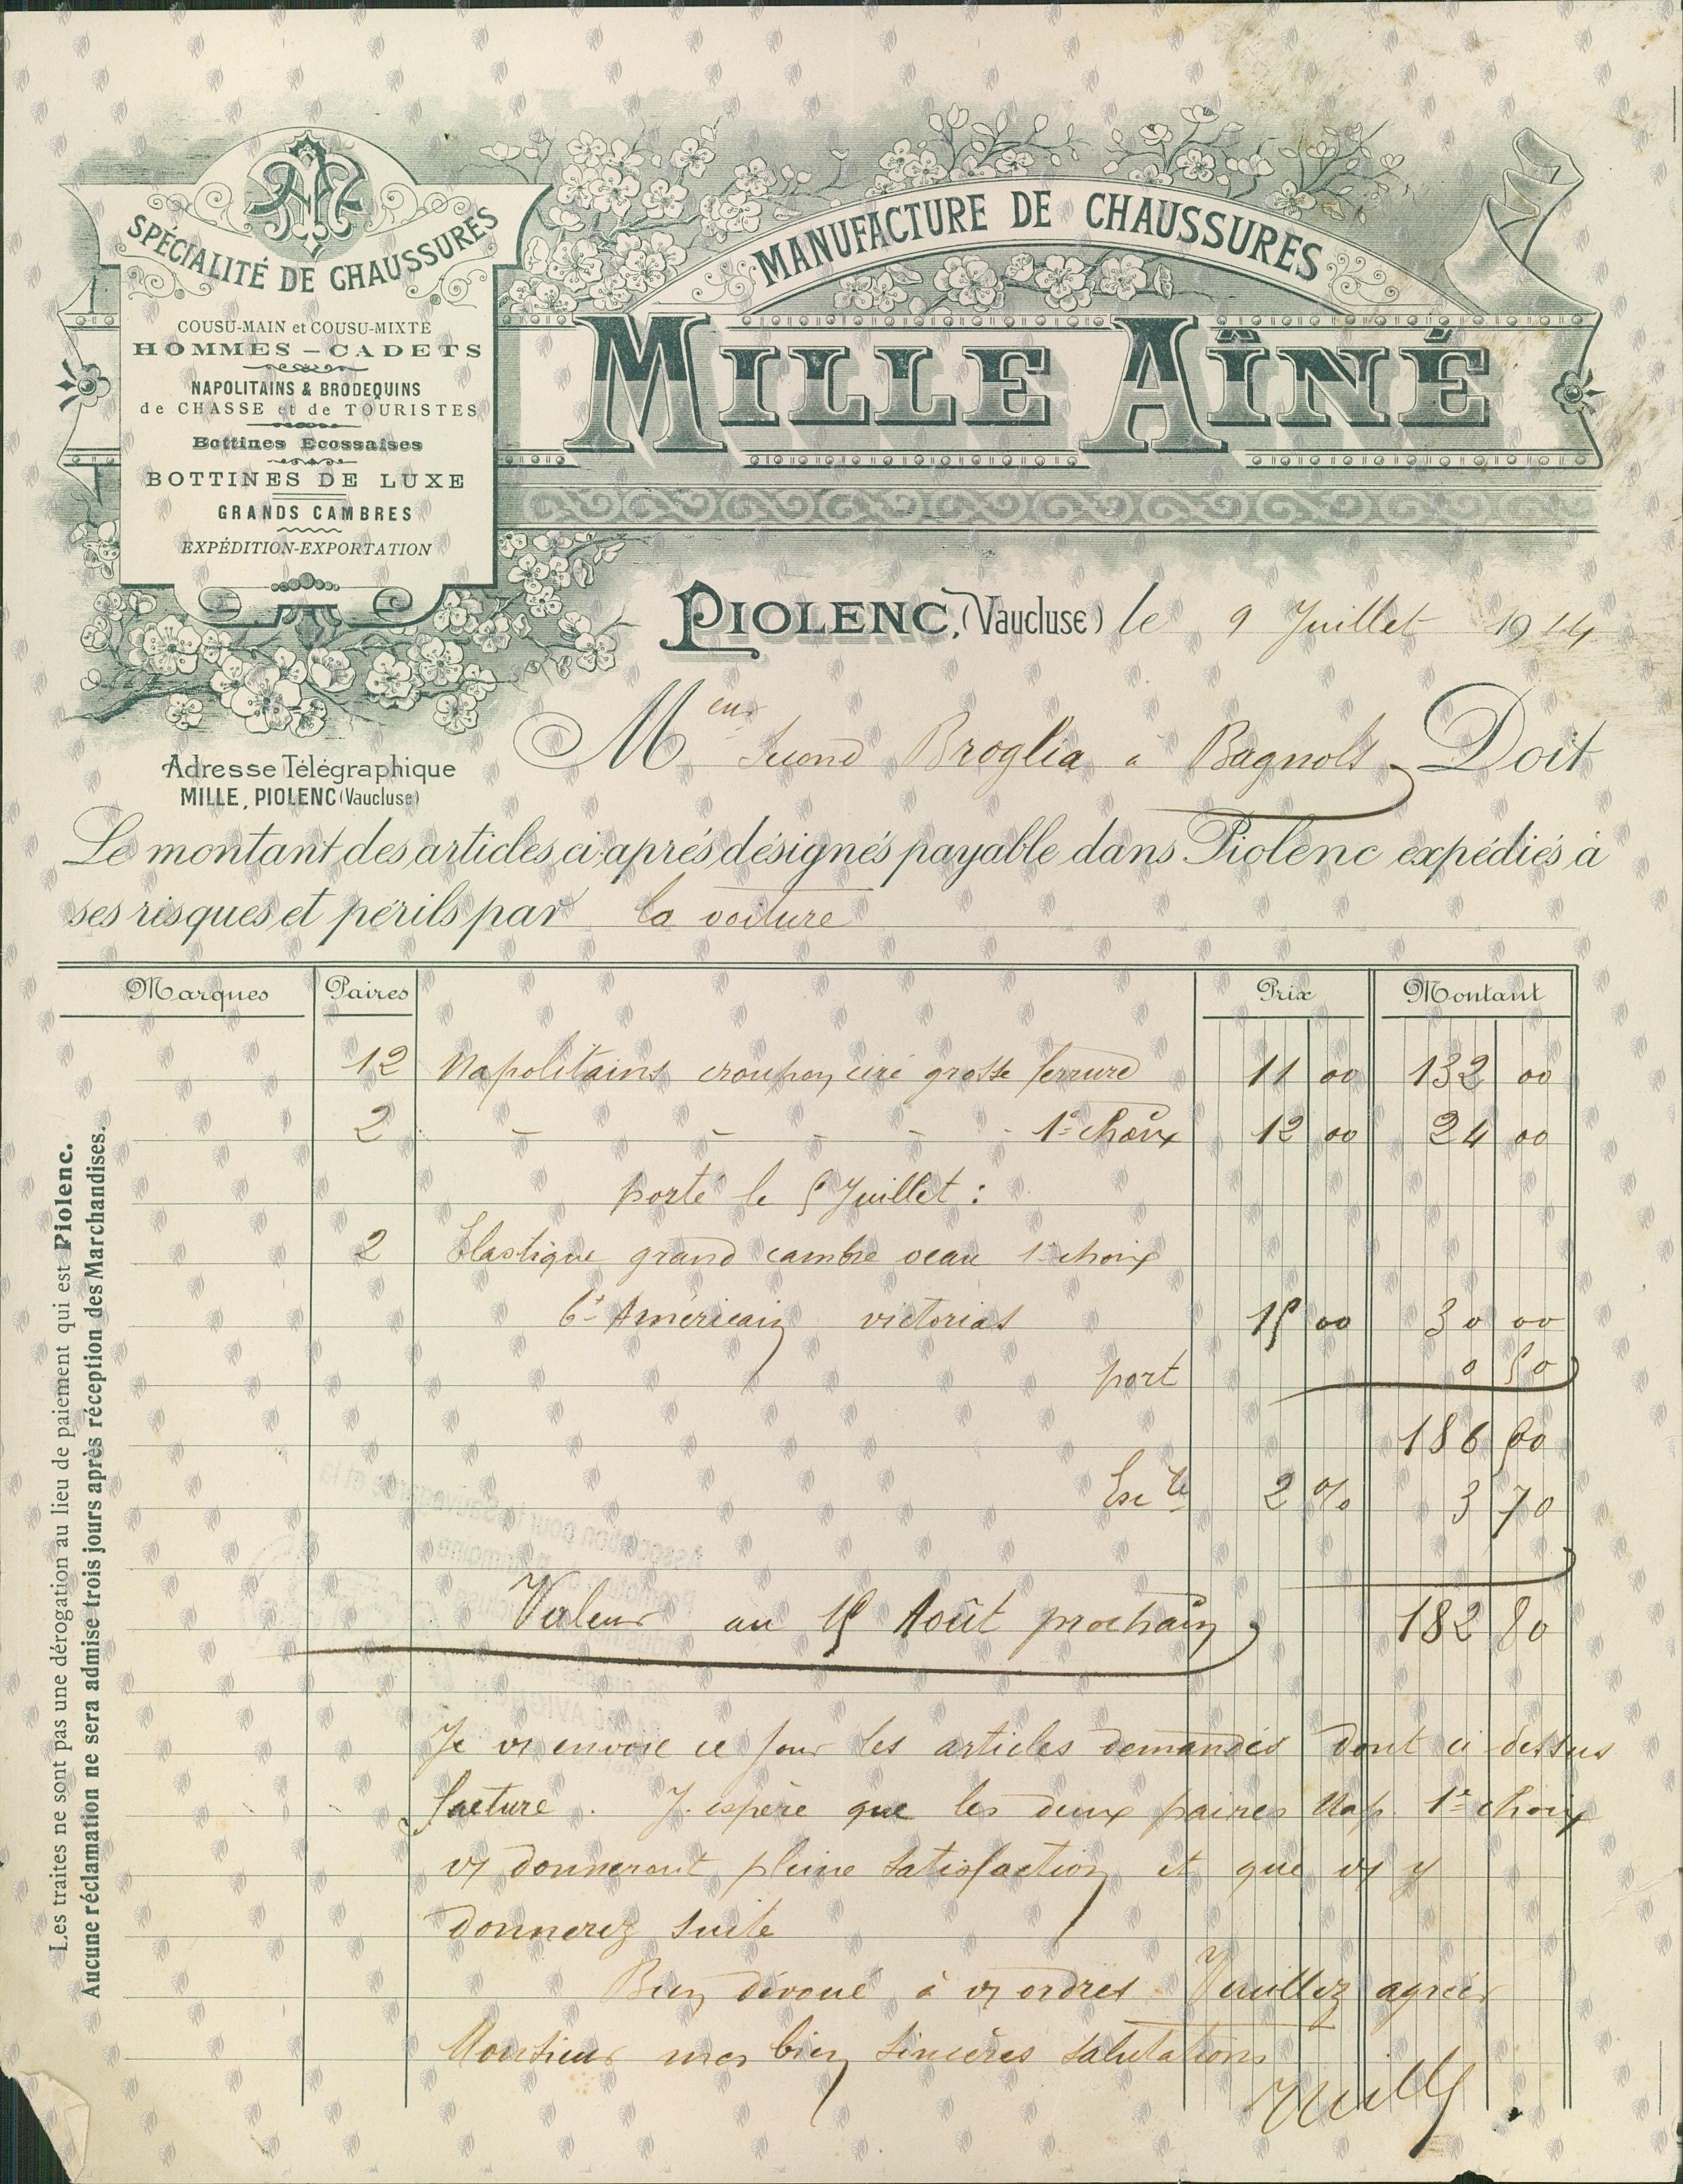 SPÉCIALITÉ DE CHAUSSURES
COUSU-MAIN et COUSU-MIXTE
HOMMES - CADETS
NAPOLITAINS & BRODEQUINS
de CHASSE et de TOURISTES
Bottines Ecossaises
BOTTINES DE LUXE
GRANDS CAMBRES
EXPÉDITION-EXPORTATION
MANUFACTURE DE CHAUSSURES
MILLE AÎNÉ
PIOLENC, (Vaucluse) le 9 Juillet 1914
Adresse Télégraphique
MILLE, PIOLENC (Vaucluse)
Meur Broglia à Bagnols Doit
Le montant des articles ci-après désignés payable dans Piolenc expédiés à
ses risques et périls par la voiture
Marques Paires Prix Montant
12 Napolitains croupon ciré grosse ferrure 11 00 132 00
2 - - - - - 1e choix 12 00 24 00
porté le 5 Juillet :
2 Elastique grand cambre veau 1e choix
bt Américain victorias 15 00 30 00
port 0 50
186 50
Escte 2 % 3 70
Valeur au 15 Août prochain 182 80
Je vs envoie ce jour les articles demandés dont ci-dessus
facture. J'espère que les deux paires Nap. 1e choix
vs donneront pleine satisfaction et que vs y
donnerez suite
Bien dévoué à vs ordres Veuillez agréer
Monsieur mes bien sincères salutations
Mille
Les traites ne sont pas une dérogation au lieu de paiement qui est Piolenc.
Aucune réclamation ne sera admise trois jours après réception des Marchandises.